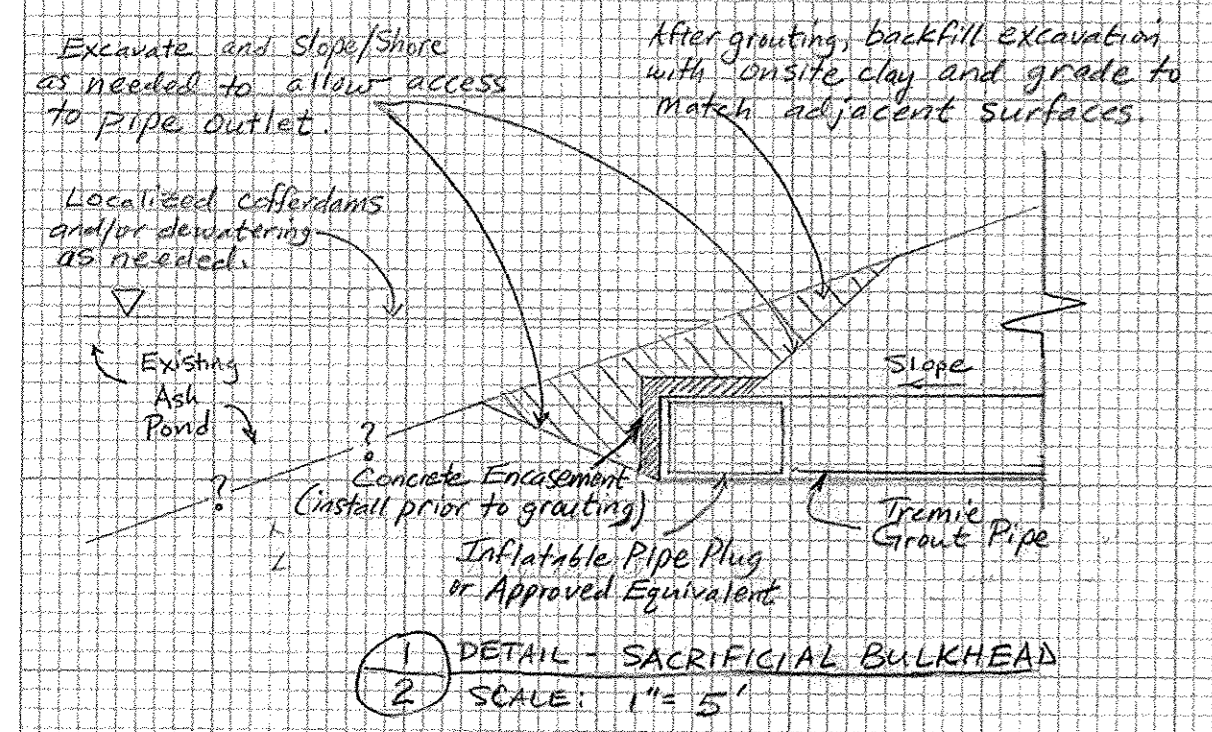 Excavate and Slope/Shore
as needed to allow access
to pipe outlet.
After grouting, backfill excavation
with onsite clay and grade to
match adjacent surfaces.
Localized cofferdams
and/or dewatering
as needed.
Existing
Ash
Pond
?
?
Slope
Concrete Encasement
(install prior to grouting)
Tremie
Grout Pipe
Inflatable Pipe Plug
or Approved Equivalent
1
2
DETAIL - SACRIFICIAL BULKHEAD
SCALE: 1"= 5'